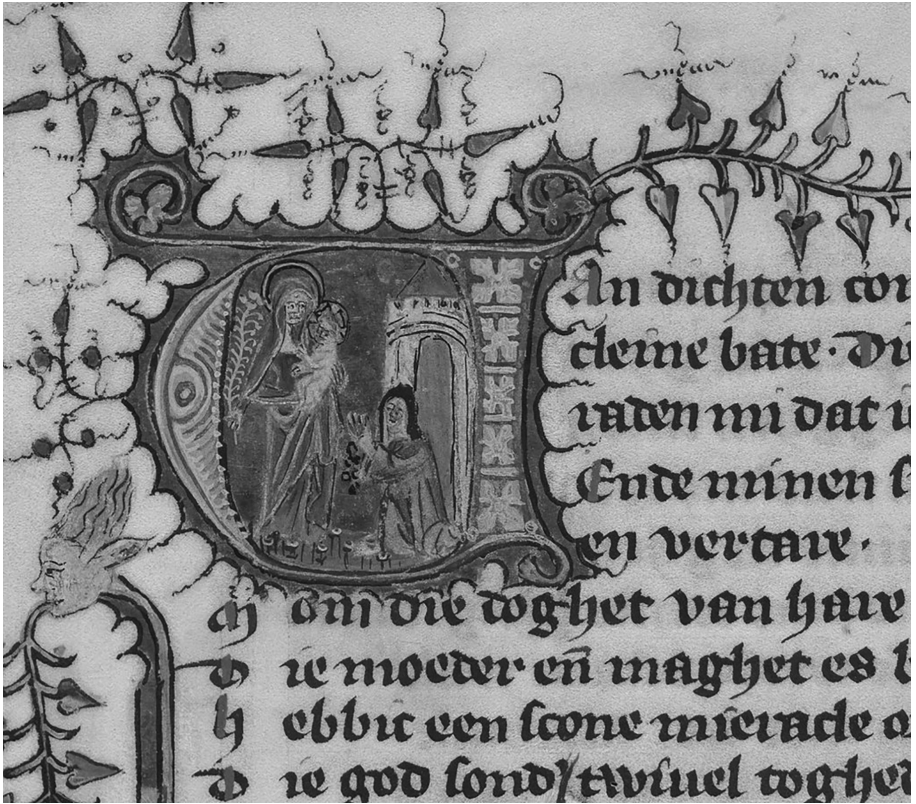 VAn dichten com
cleine bate. Di
raden mi dat i
Ende minen s
en vertare.
M om die doghet van hare
Die moeder en̄ maghet es b
hebbic een scone mieracle o
Die god sond' twiuel toghed